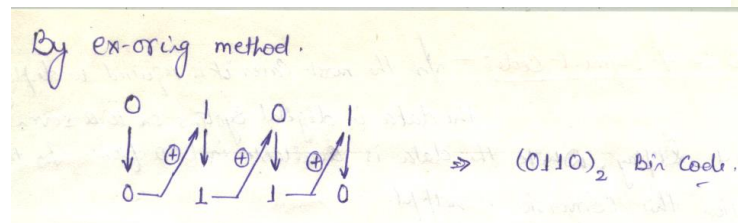 By ex-oring method.
0 1 0 1
⊕ ⊕ ⊕
0 1 1 0 ⇒ (0110)₂ Bin Code.